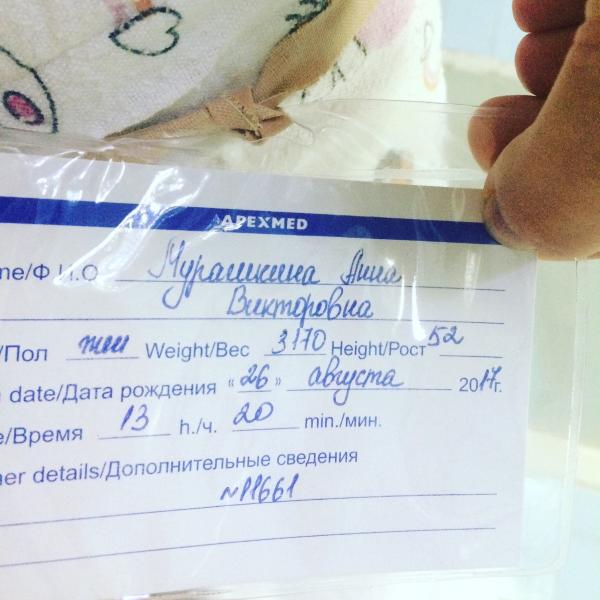 APEXMED
me/Ф.И.О Мурашкина Анна
Викторовна
/Пол жен Weight/Вес 3170 Height/Рост 52
date/Дата рождения «26» августа 2017г.
e/Время 13 h./ч. 20 min./мин.
er details/Дополнительные сведения
N11661